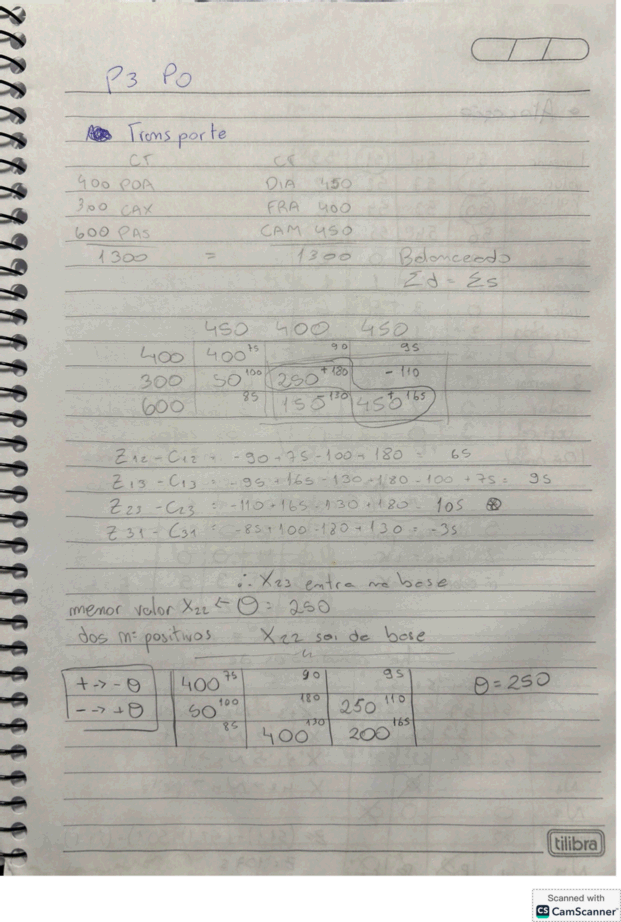 P3 PO
Transporte
CT CC
400 POA DIA 450
300 CAX FRA 400
600 PAS CAM 450
1300 = 1300 Balanceado
Σd = Σs
450 400 450
400 400 75 90 95
300 50 100 250 + 180 - 110
600 85 150 130 450 + 165
Z12 - C12 = -90 + 75 - 100 + 180 = 65
Z13 - C13 = -95 + 165 - 130 + 180 - 100 + 75 = 95
Z23 - C23 = -110 + 165 - 130 + 180 = 105
Z31 - C31 = -85 + 100 - 180 + 130 = -35
∴ X23 entra na base
menor valor X22 ← θ = 250
dos nº positivos X22 sai da base
+ → - θ 400 75 90 95 θ = 250
- → + θ 50 100 180 250 110
85 400 130 200 165
tilibra
Scanned with
CS CamScanner